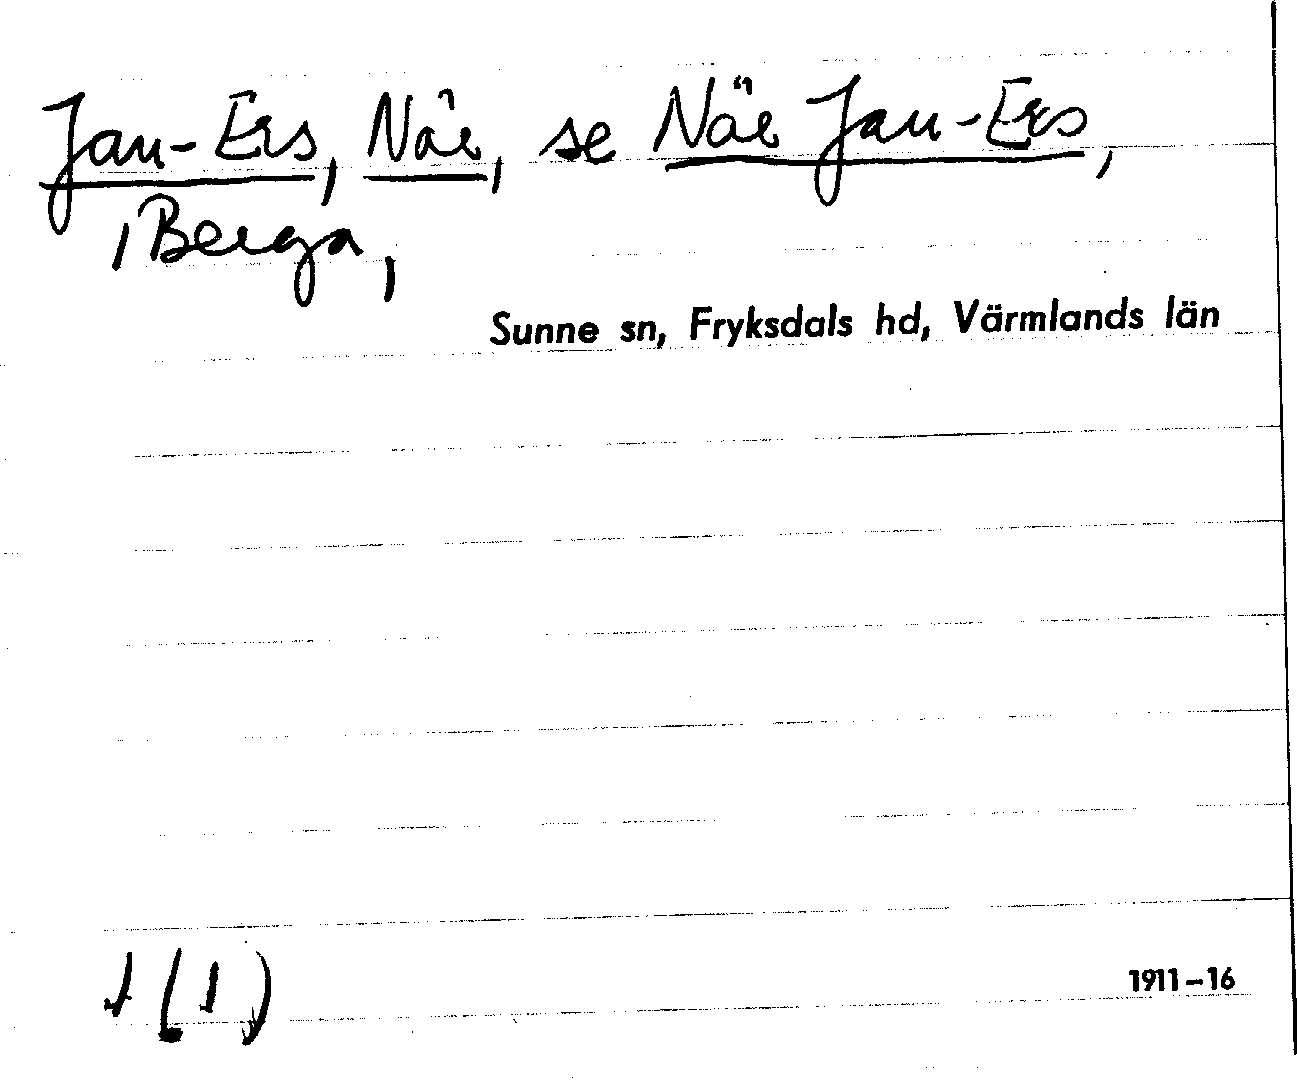 Jan-Ers, Näe, se Näe Jan-Ers,
i Berga,
Sunne sn, Fryksdals hd, Värmlands län
1(1)
1911–16